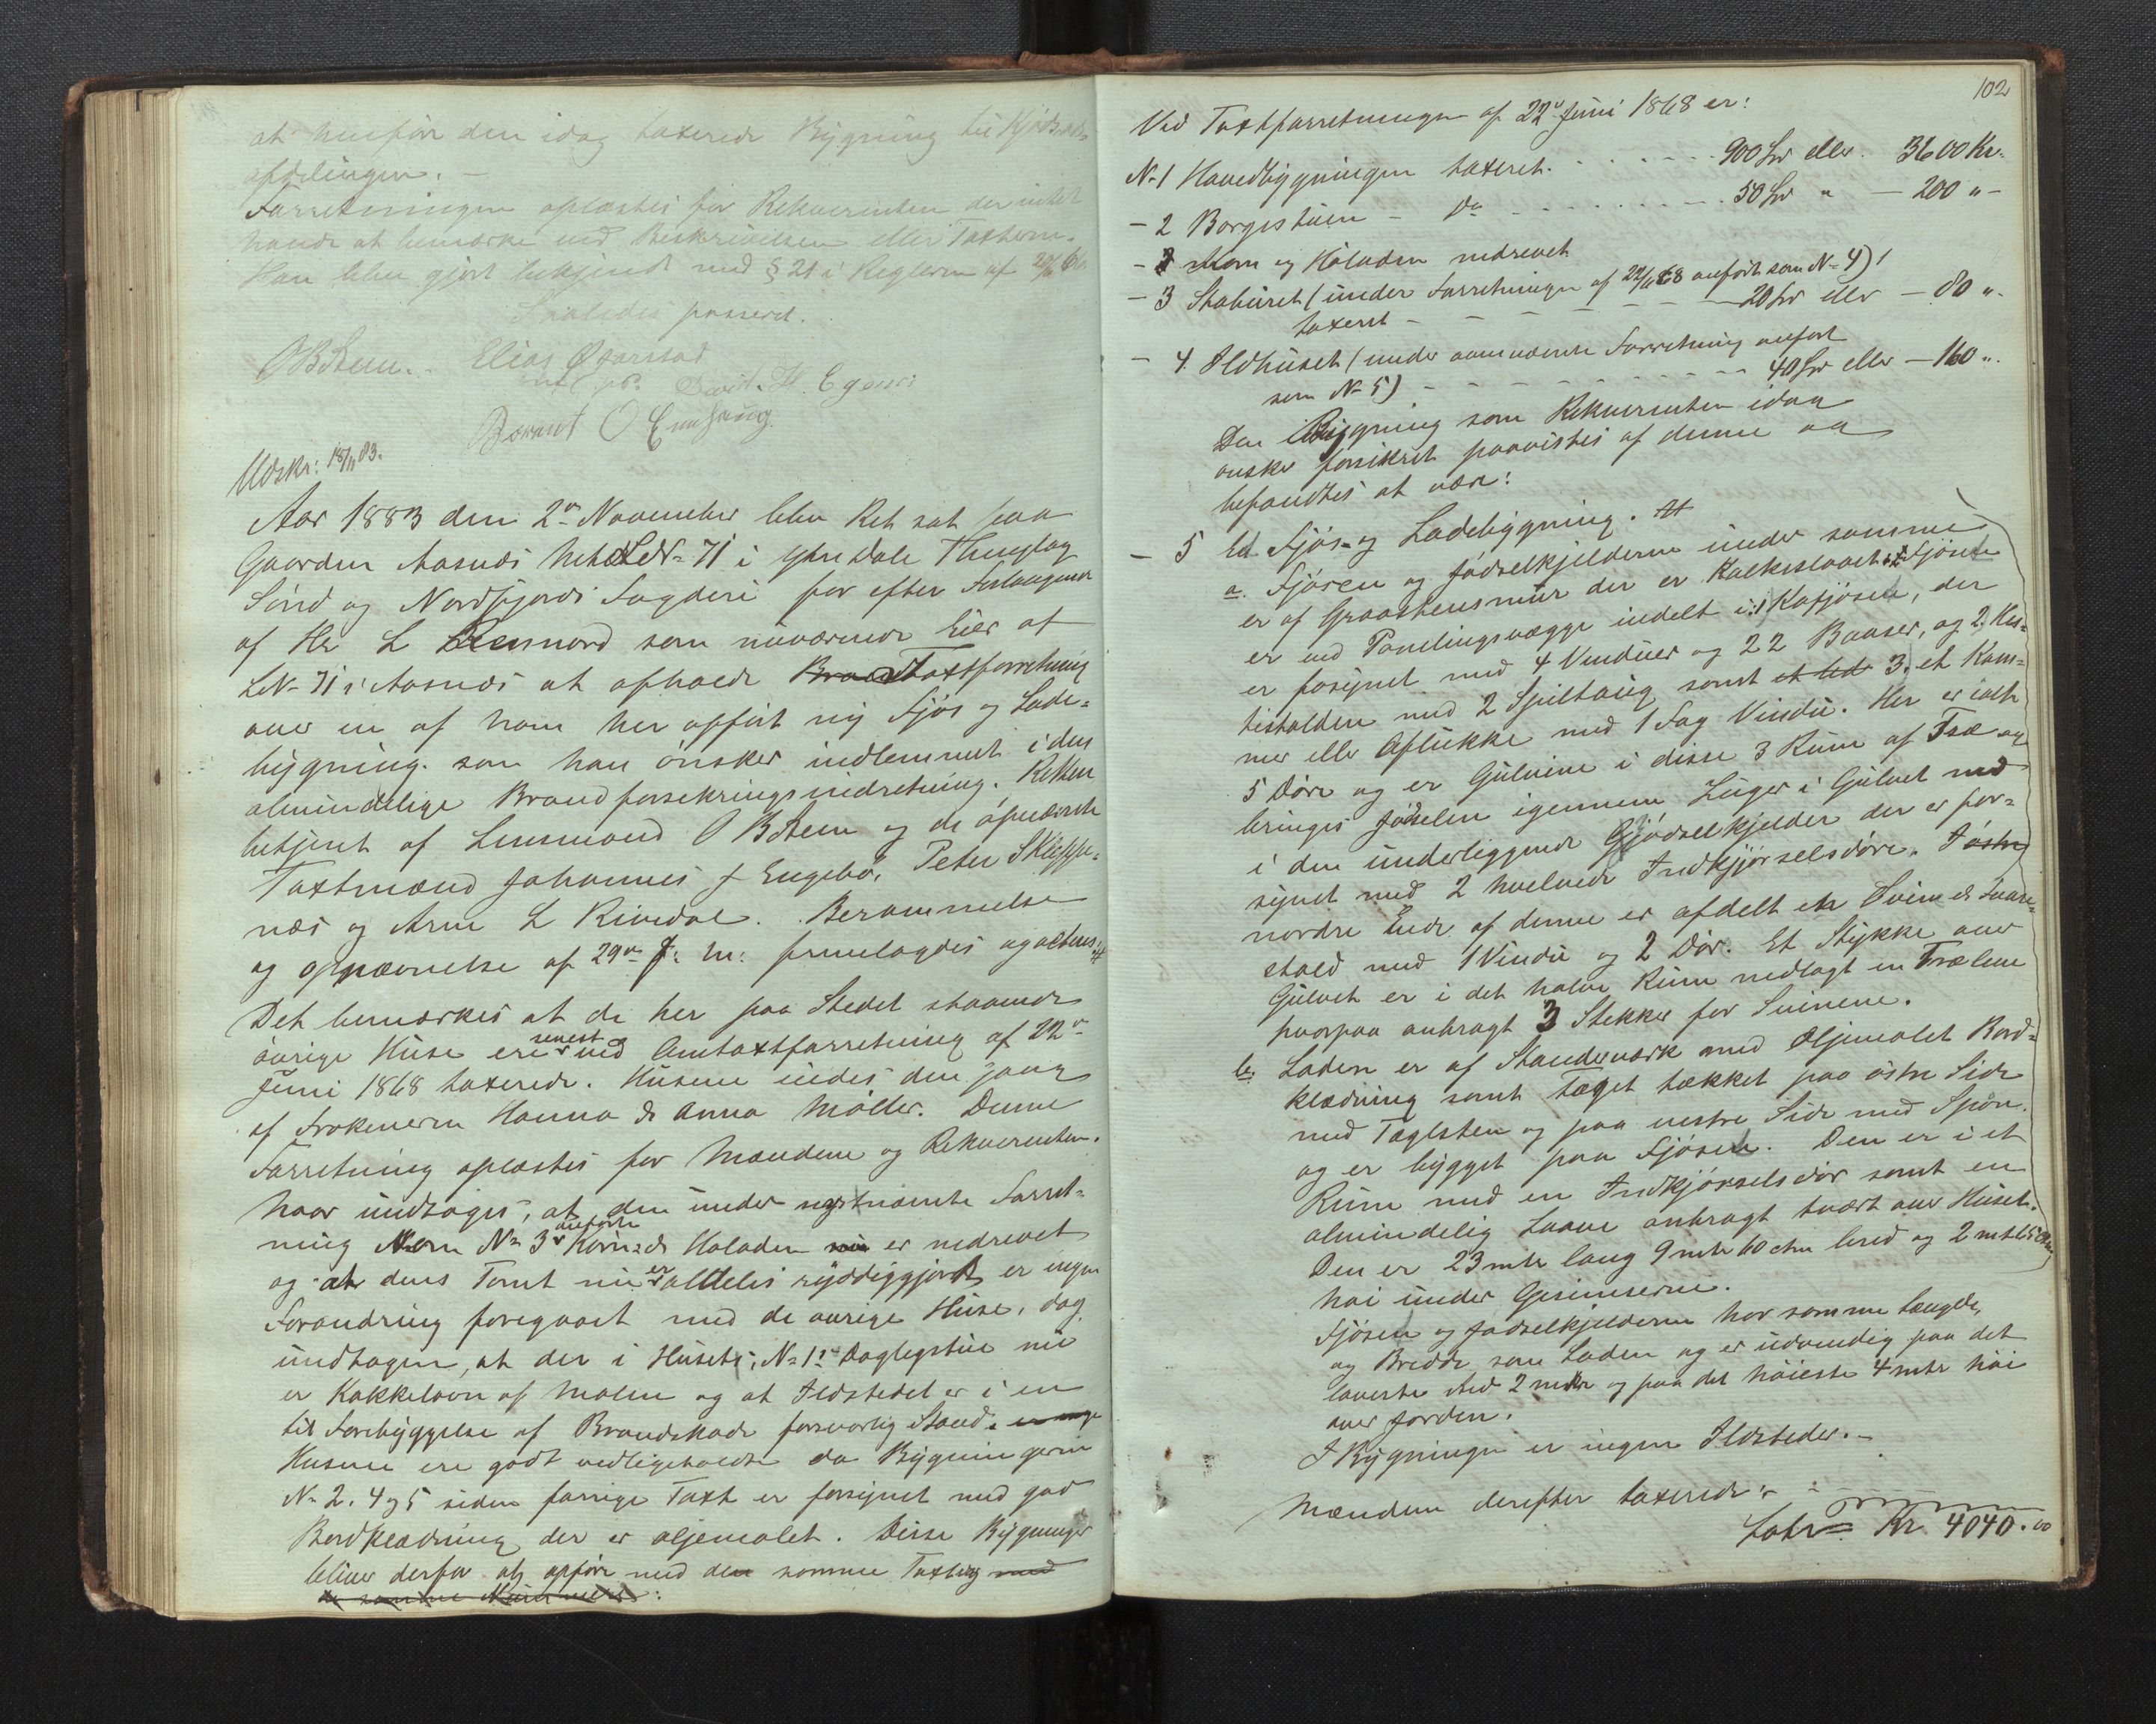 at henføre den idag taxerede Bygning til Kjøbstads-
afdelingen. —
Forretningen oplæstes for Rekvirenten der intet
havde at bemærke ved Beskrivelsen eller Taxterne.
Han blev gjort bekjendt med § 21 i Reglerne af
Saaledes passeret.
OBStem. Elias Øgarstad
David. H. Egenes
Berent O Engehaug
Udskr: 18/11 83.
Aar 1883 den 2den November blev Ret sat paa
Gaarden Aasnæs LN= 71 i Ytre Dale Thinglag
Sönd og Nordfjords Fogderi for efter Forlangende
af Hr L som nuværende Eier af
LN= 71 i Aasnæs at afholde Brand Taxtforretning
over en af ham her opfört ny Fjös og Lade=
bygning som han önsker indlemmet i den
almindelige Brandforsikringsindretning. Retten
betjent af Lensmand O BStem og de opnævnte
Taxtmænd Johannes J Engebö, Peter Skieppe-
næs og Arne L Rivedal. Berammelse
og opnævnelse af 29de f: M: fremlagdes og
Det bemærkes at de her paa Stedet staaende
övrige Huse ere senest ved Omtaxtforretning af 22de
Juni 1868 taxerede. Husene eiedes den gang
af Frökenerne Hanna & Anna Möller. Denne
Forretning oplæstes for Mændene og Rekvirenten.
Naar undtages, at den under nystnævnte Forret-
ning som N= 3 anförte Korn= & Höladen nu er nedrevet
og at dens Tomt nu er aldeles ryddiggjort, er ingen
Forandring foregaaet med de övrige Huse, dog
undtagen, at der i Husets, N= 1's Daglegstue nu
er Kakkelovn af Malm og at Ildstedet er i en
til Forebyggelse af Brandskade forsvarlig Stand.
Husene ere godt vedligeholdte da Bygningerne
N= 2. 4 og 5 siden forrige Taxt er forsynet med god
Bordklædning der er oljemalet. Disse Bygninger
bliver derfor at opföre med den samme Taxt og med
de samme Nummere:
102
Ved Taxtforretningen af 22de Juni 1868 er:
N= 1 Hovedbygningen taxeret. - - - - 900 Spd eller 3600 Kr.
- 2 Borgestuen - do - - - - - - 50 Spd " — 200 " -
- 3 Korn og Höladen nedrevet
- 3 Stabüret (under Forretningen af 22/6 68 anfört som N= 4)
taxeret - - - - - - 20 Spd eller — 80 ".
- 4. Ildhuset (under samme Forretning anfört
som N= 5) - - - - - - 40 Spd eller — 160 ".
Den Bygning som Rekvirenten idag
önsker forsikret paavistes af denne og
befandtes at være:
- 5 Ed Fjös= og Ladebygning.
a. Fjösen og Jödselkjelderen under samme
er af Graastensmur der er Kalkslaaet. Fjösen
er ved Panelingsvægge indelt i: 1 Kofjösen, der
er forsynet med 4 Vinduer og 22 Baaser, og 2. Hes=
testalden med 2 Spiltoug samt et led 3. et Kam=
mer eller Aflukke med 1 Fag Vindu. Her er ialt
5 Döre og er Gulvene i disse 3 Rum af Træ og
bringes Jödselen igjennem Luger i Gulvet ned
i den underliggende Gjödselkjelder der er for=
synet med 2 hvelvede Indkjörselsdöre. I östre
nordre Ende af denne er afdelt et Svine & Faare=
stald med 1 Vindu og 2 Dör. Et Stykke over
Gulvet er i det halve Rum nedlagt en Trælem
hvorpaa anbragt 3 Stekker for Svinene.
b. Laden er af Standerværk med Oljemalet Bord=
klædning samt taget tækket paa östre Side
med Taglsten og paa vestre Side med Spön.
og er bygget paa Fjösen. Den er i et
Rum med en Indkjörselsdör samt en
almindelig Laave anbragt tvært over Huset.
Den er 23 mtr lang 9 mtr 60 ctm bred og 2 mtr 65 ctm
höi under Gesimserne.
Fjösen og Jödselkjelderen har samme længde
og Bredde som Laden og er udvendig paa det
laveste Sted 2 mtr og paa det höieste 4 mtr höi
over Jorden.
I Bygningen er ingen Ildsteder. -
Mændene derefter taxerede: -
Kr. 4040.00